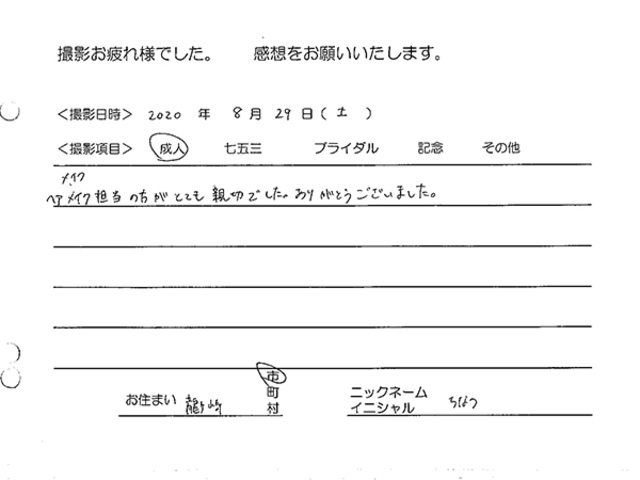 撮影お疲れ様でした。 感想をお願いいたします。
<撮影日時> 2020 年 8 月 29 日 ( 土 )
<撮影項目> 成人 七五三 ブライダル 記念 その他
メイク
ヘアメイク担当の方がとても親切でした。ありがとうございました。
お住まい 龍ケ崎 市 町 村
ニックネーム
イニシャル